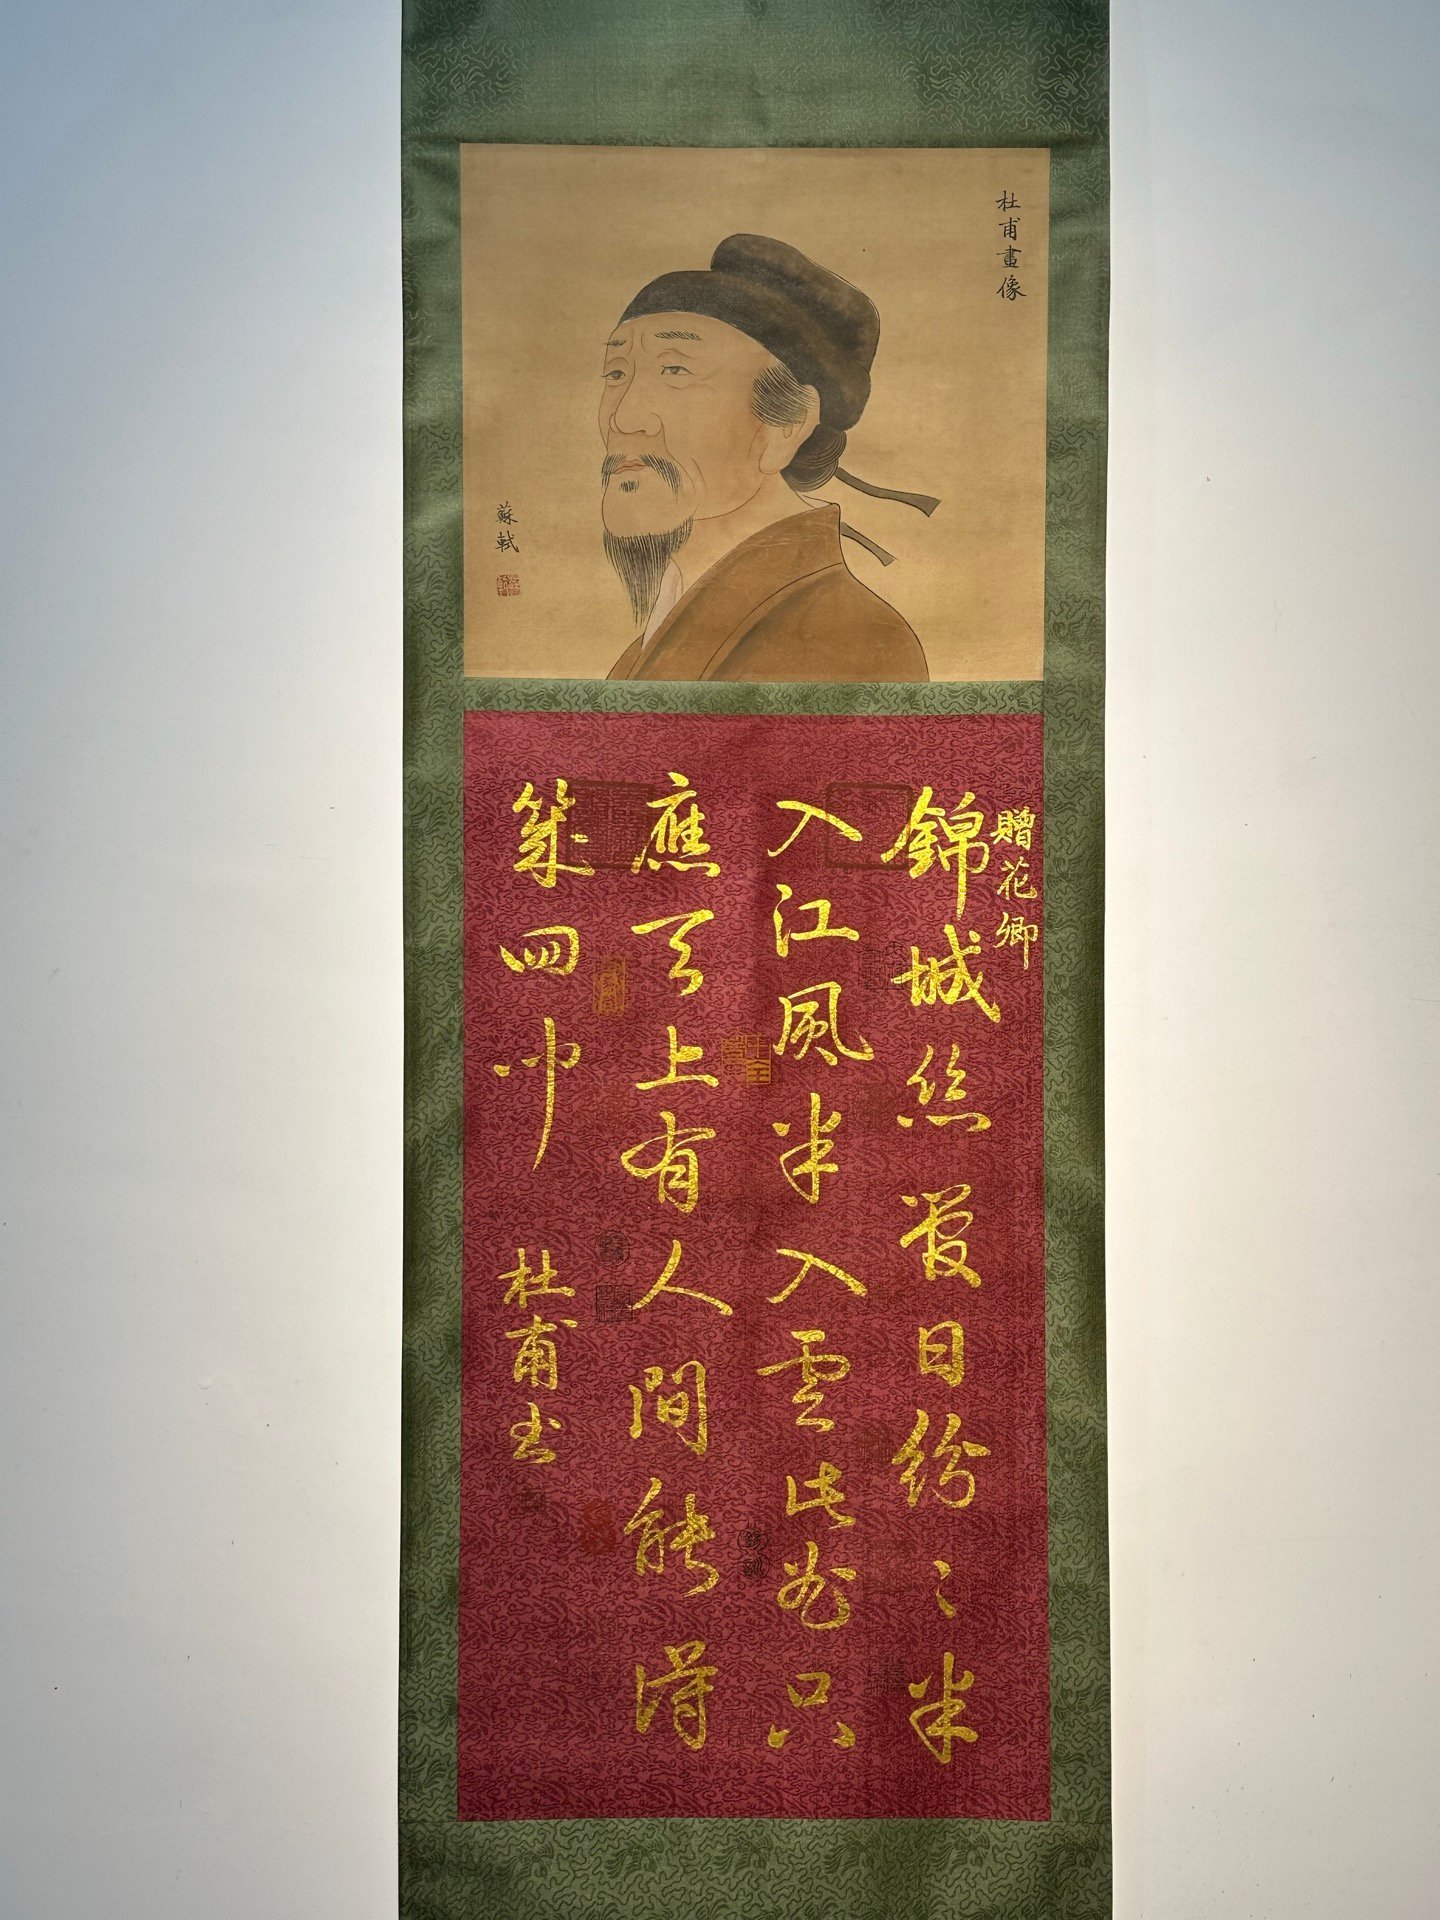 杜甫畫像
蘇軾
贈花卿
錦城絲管日紛々半
入江風半入雲此曲只
應天上有人間能得
幾回聞
杜甫书